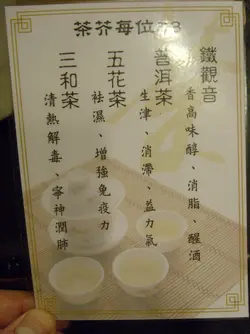 茶芥每位$8
鐵觀音
香高味醇、消脂、醒酒
普洱茶
生津、消滯、益力氣
五花茶
祛濕、增強免疫力
三和茶
清熱解毒、寧神潤肺